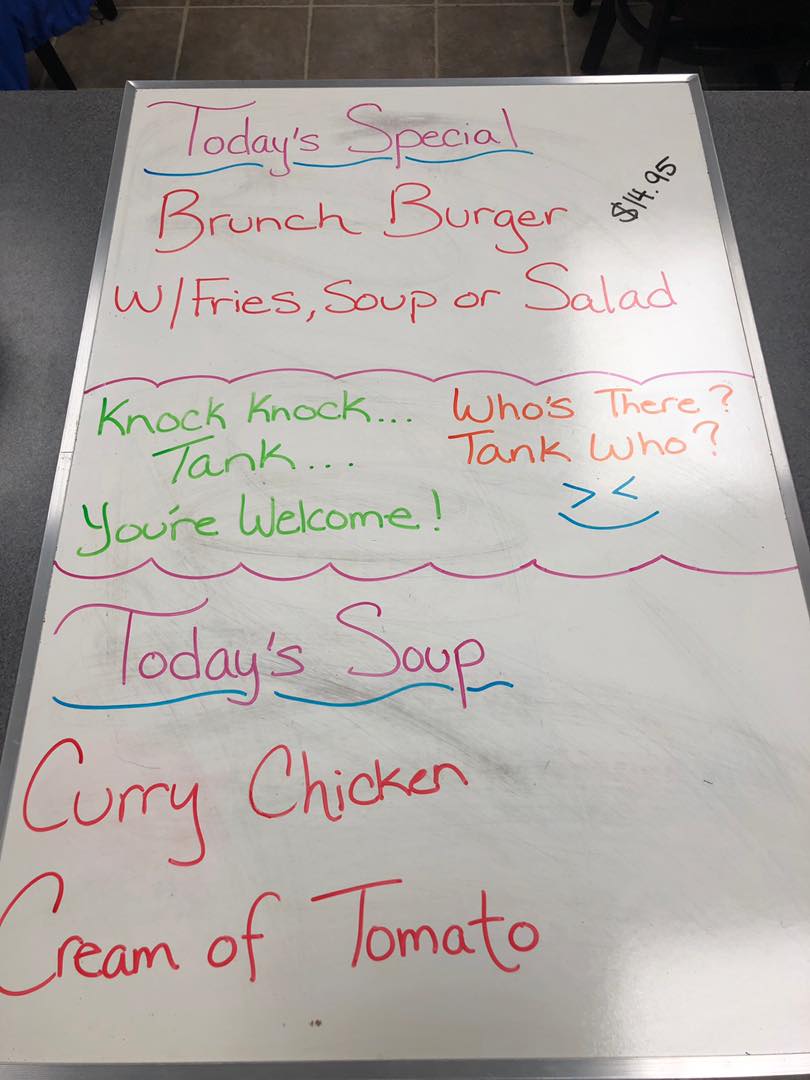 Today's Special
Brunch Burger
$14.95
W/Fries, Soup or Salad
Knock Knock... Who's There?
Tank... Tank Who?
You're Welcome!
Today's Soup
Curry Chicken
Cream of Tomato